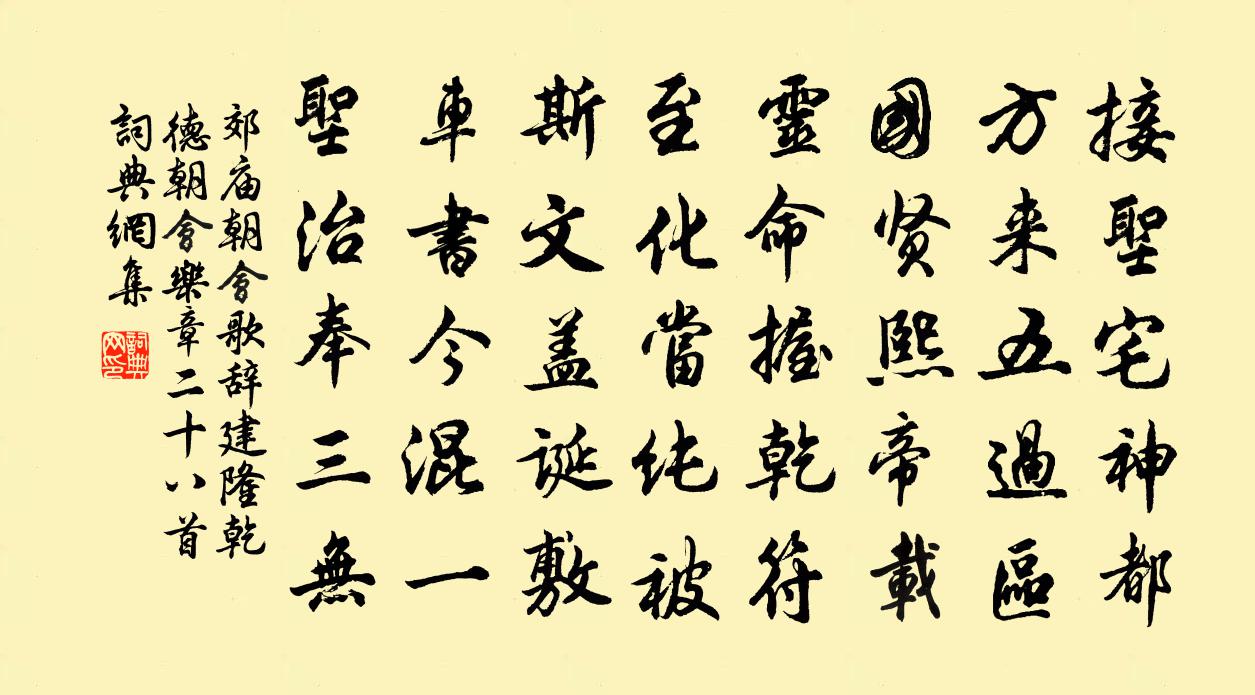 接聖宅神都
方来五過區
國贤熙帝載
靈命握乾符
至化當纯被
斯文盖誕敷
車書今混一
聖治奉三無
郊庙朝會歌辞建隆乾
德朝會樂章二十八首
詞典網集
詞典
网印